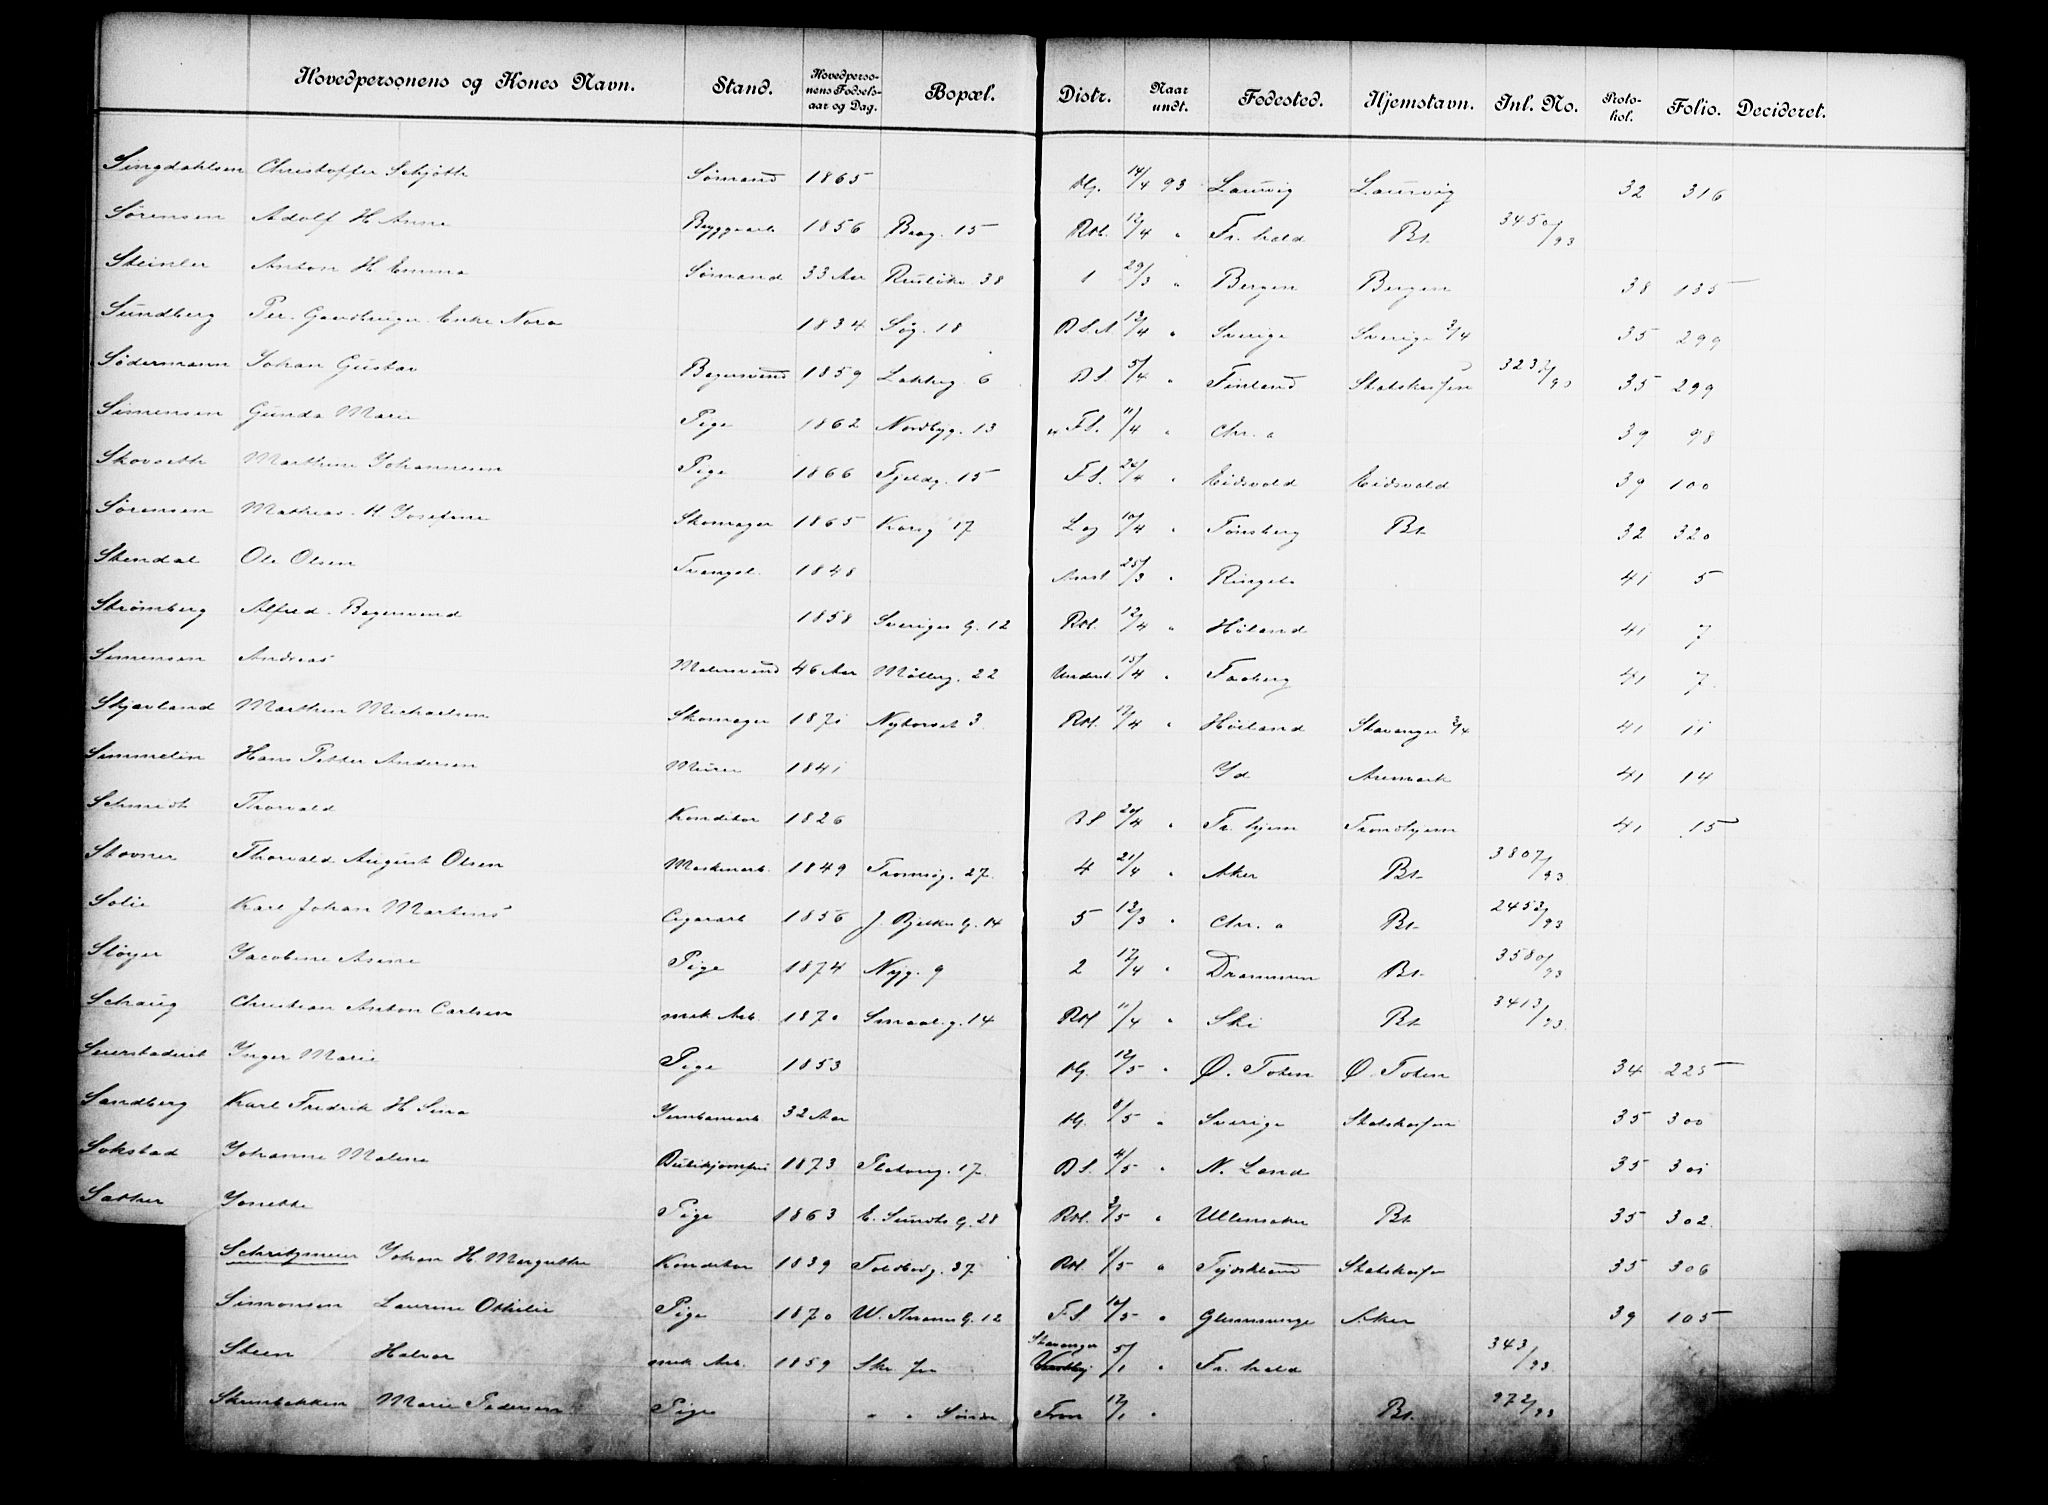 Hovedpersonens og Kones Navn. Stand. Hovedpersonens Fødselsaar og Dag. Bopæl. Distr. Naar undt. Fødested. Hjemstavn. Inl. No. Protokol. Folio. Decideret.
Singdahlsen Christoffer Schjøtt Sømand 1865 Hg. 14/4 93 Laurvig Laurvig 32 316
Sørensen Adolf H Anna Bryggearb 1856 Brog. 15 Rtl. 12/4 " Fr. hald Bt. 3450/93
Steinler Anton H Emma Sømand 33 Aar Rusløkv. 38 1 29/3 " Bergen Bergen 38 135
Sundberg Per. Enke Nora 1834 Søg. 18 12/4 " Sverige Sverige 3/4 35 299
Södermann Johan Gustav Bagersvend 1859 Lakkeg. 6 BS. 5/4 " Finland Statskassen 3237/93 35 299
Simensen Gunda Marie Pige 1862 Nordbyg. 13 FS. 11/4 " Chr. a 39 98
Skovseth Marthine Johannesen Pige 1866 Fjeldg. 15 FS. 26/4 " Eidsvold Eidsvold 39 100
Sørensen Mathias H Josefine Skomager 1865 Korsg 17 10/4 " Tønsberg Bt 32 320
Stendal Ole Olsen Tvangsl. 1848 25/3 " Ringeb. 41 5
Strømberg Alfred. Bagersvend 1858 Sveriges G. 12 Rtl. 12/4 " Høland 41 7
Simensen Andreas Malersvend 46 Aar Møllerg. 22 Underst. 15/4 " Faaberg 41 7
Skjævland Marthin Michaelsen Skomager 1871 Nytorvet 3 Rtl. 17/4 " Høiland Stavanger 3/4 41 11
Simmelin Hans Petter Andersen Murer 1841 Id Aremark 41 14
Schmidt Thorvald Konditor 1826 BS 20/4 " Tr. hjem Trondhjem 41 15
Stovner Thorvald August Olsen Maskinarb. 1849 Tromsøg. 27 4 21/4 " Aker Bt 3807/93
Solie Karl Johan Martins Cigararb 1856 J. Bjelkes G. 14 5 13/3 " Chr. a Bt 2453/93
Støyer Jacobine Asine Pige 1874 Nyg. 9 2 17/4 " Drammen Bt 3580/93
Schaug Christian Anton Carlsen mek Arb. 1870 Smaalg. 14 Rtl 11/4 " Ski Bt 3413/93
Seierstadeiet Inger Marie Pige 1853 Hg. 12/5 " Ø. Toten Ø. Toten 34 225
Sandberg Karl Fredrik H Sina Jernbanearb. 32 Aar Hg. 8/5 " Sverige Statskassen 35 300
Sokstad Johanne Maline Butikjomfru 1873 Platoug. 17 BS. 4/5 " N. Land 35 301
Sæther Jonette Pige 1863 E. Sundts G. 28 Rtl. 3/5 " Ullensaker Bt 35 302
Schretzmeier Johan H. Margrethe Konditor 1839 Toldbodg. 37 Rtl. 1/5 " Tydskland Statskassen 35 306
Simonsen Laurine Othilie Pige 1870 W. Thranes G. 12 FS 10/5 " Glemminge Aker 39 105
Steen Halvor mek Arb. 1859 Skr. fra Stavanger 5/1 " Fr. hald 343/93
Stenbekken Marie Pedersen Pige " " Søndre Fron 17/1 " Bt. 972/93